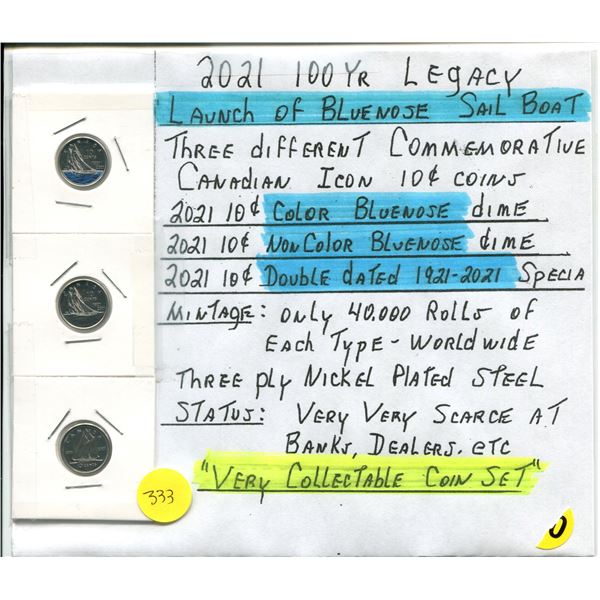 2021 100 YR LEGACY
LAUNCH OF BLUENOSE SAIL BOAT
THREE DIFFERENT COMMEMORATIVE
CANADIAN ICON 10¢ COINS
2021 10¢ COLOR BLUENOSE DIME
2021 10¢ NONCOLOR BLUENOSE DIME
2021 10¢ DOUBLE DATED 1921-2021 SPECIA
MINTAGE: ONLY 40.000 ROLLS OF
EACH TYPE - WORLDWIDE
THREE PLY NICKEL PLATED STEEL
STATUS: VERY VERY SCARCE AT
BANKS, DEALERS. ETC
"VERY COLLECTABLE COIN SET"
333